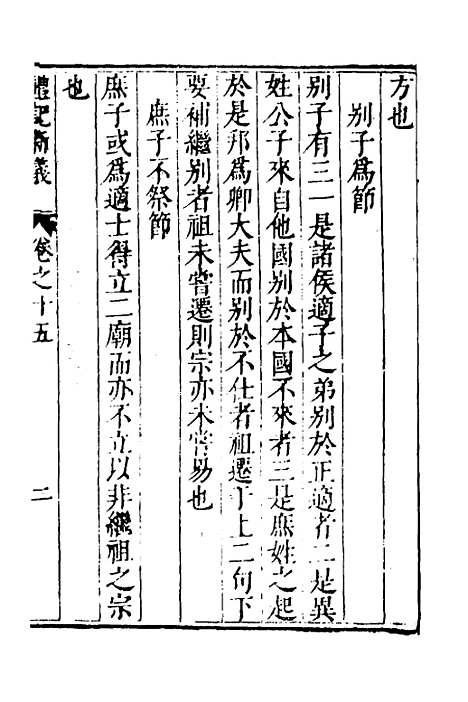 方也
別子爲節
别子有三一是諸侯適子之弟别於正適者二是異
姓公子來自他國别於本國不來者三是庶姓之起
於是邦爲卿大夫而别於不仕者祖遷于上二句下
要補繼别者祖未嘗遷則宗亦未嘗易也
庶子不祭節
庶子或爲適士得立二廟而亦不立以非繼祖之宗
也
禮記新義
卷之十五
二